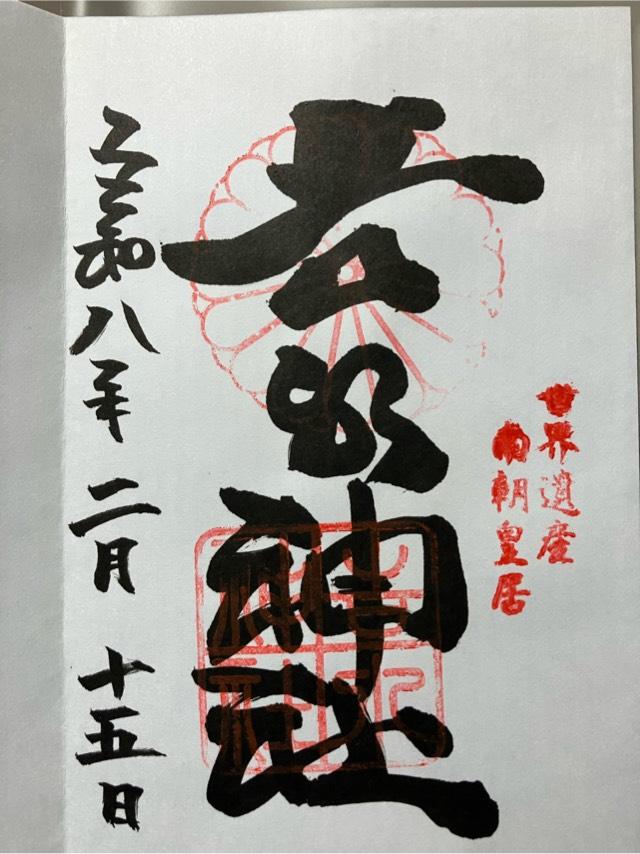 世界遺産
南朝皇居
吉水神社
令和八年二月十五日